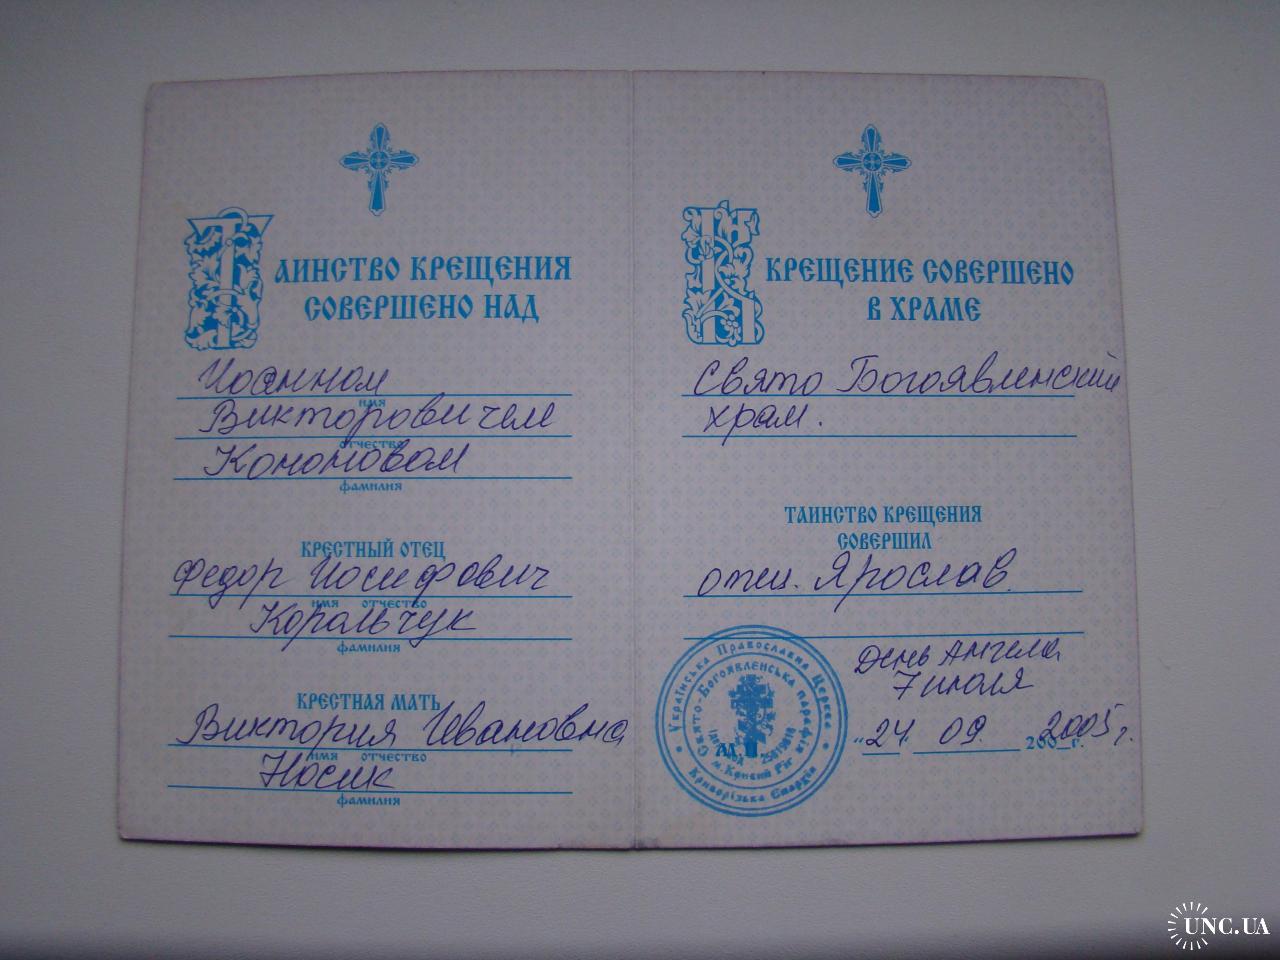 ТАИНСТВО КРЕЩЕНИЯ
СОВЕРШЕНО НАД
Иоанном
имя
Викторовичем
отчество
Кононовом
фамилия
КРЕСТНЫЙ ОТЕЦ
Федор Иосифович
имя отчество
Корольчук
фамилия
КРЕСТНАЯ МАТЬ
Виктория Ивановна
имя отчество
Носик
фамилия
КРЕЩЕНИЕ СОВЕРШЕНО
В ХРАМЕ
Свято Богоявленский
храм.
ТАИНСТВО КРЕЩЕНИЯ
СОВЕРШИЛ
отец. Ярослав
День Ангела
7 июля
"24" 09. 2005 г.
200_г.
М П
Українська Православна Церква
Криворізька Єпархія
Свято-Богоявленська парафія
м. Кривий Ріг
UNC.UA